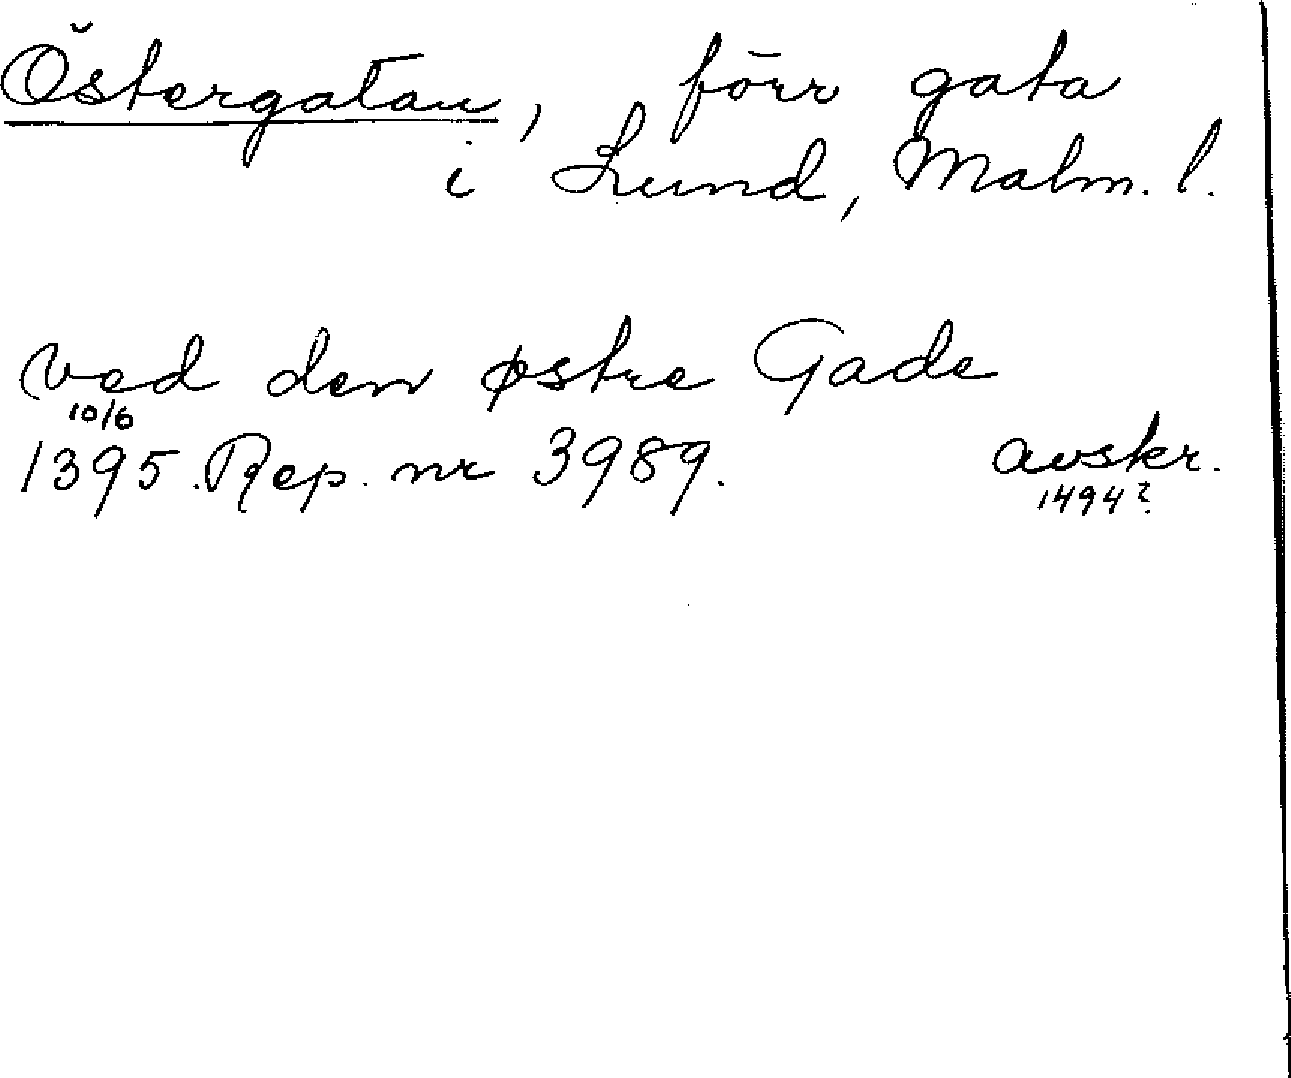 Östergatan, förr gata
i Lund, Malm. l.
ved den østre Gade
10/6
1395. Rep. nr 3989. avskr.
1494?